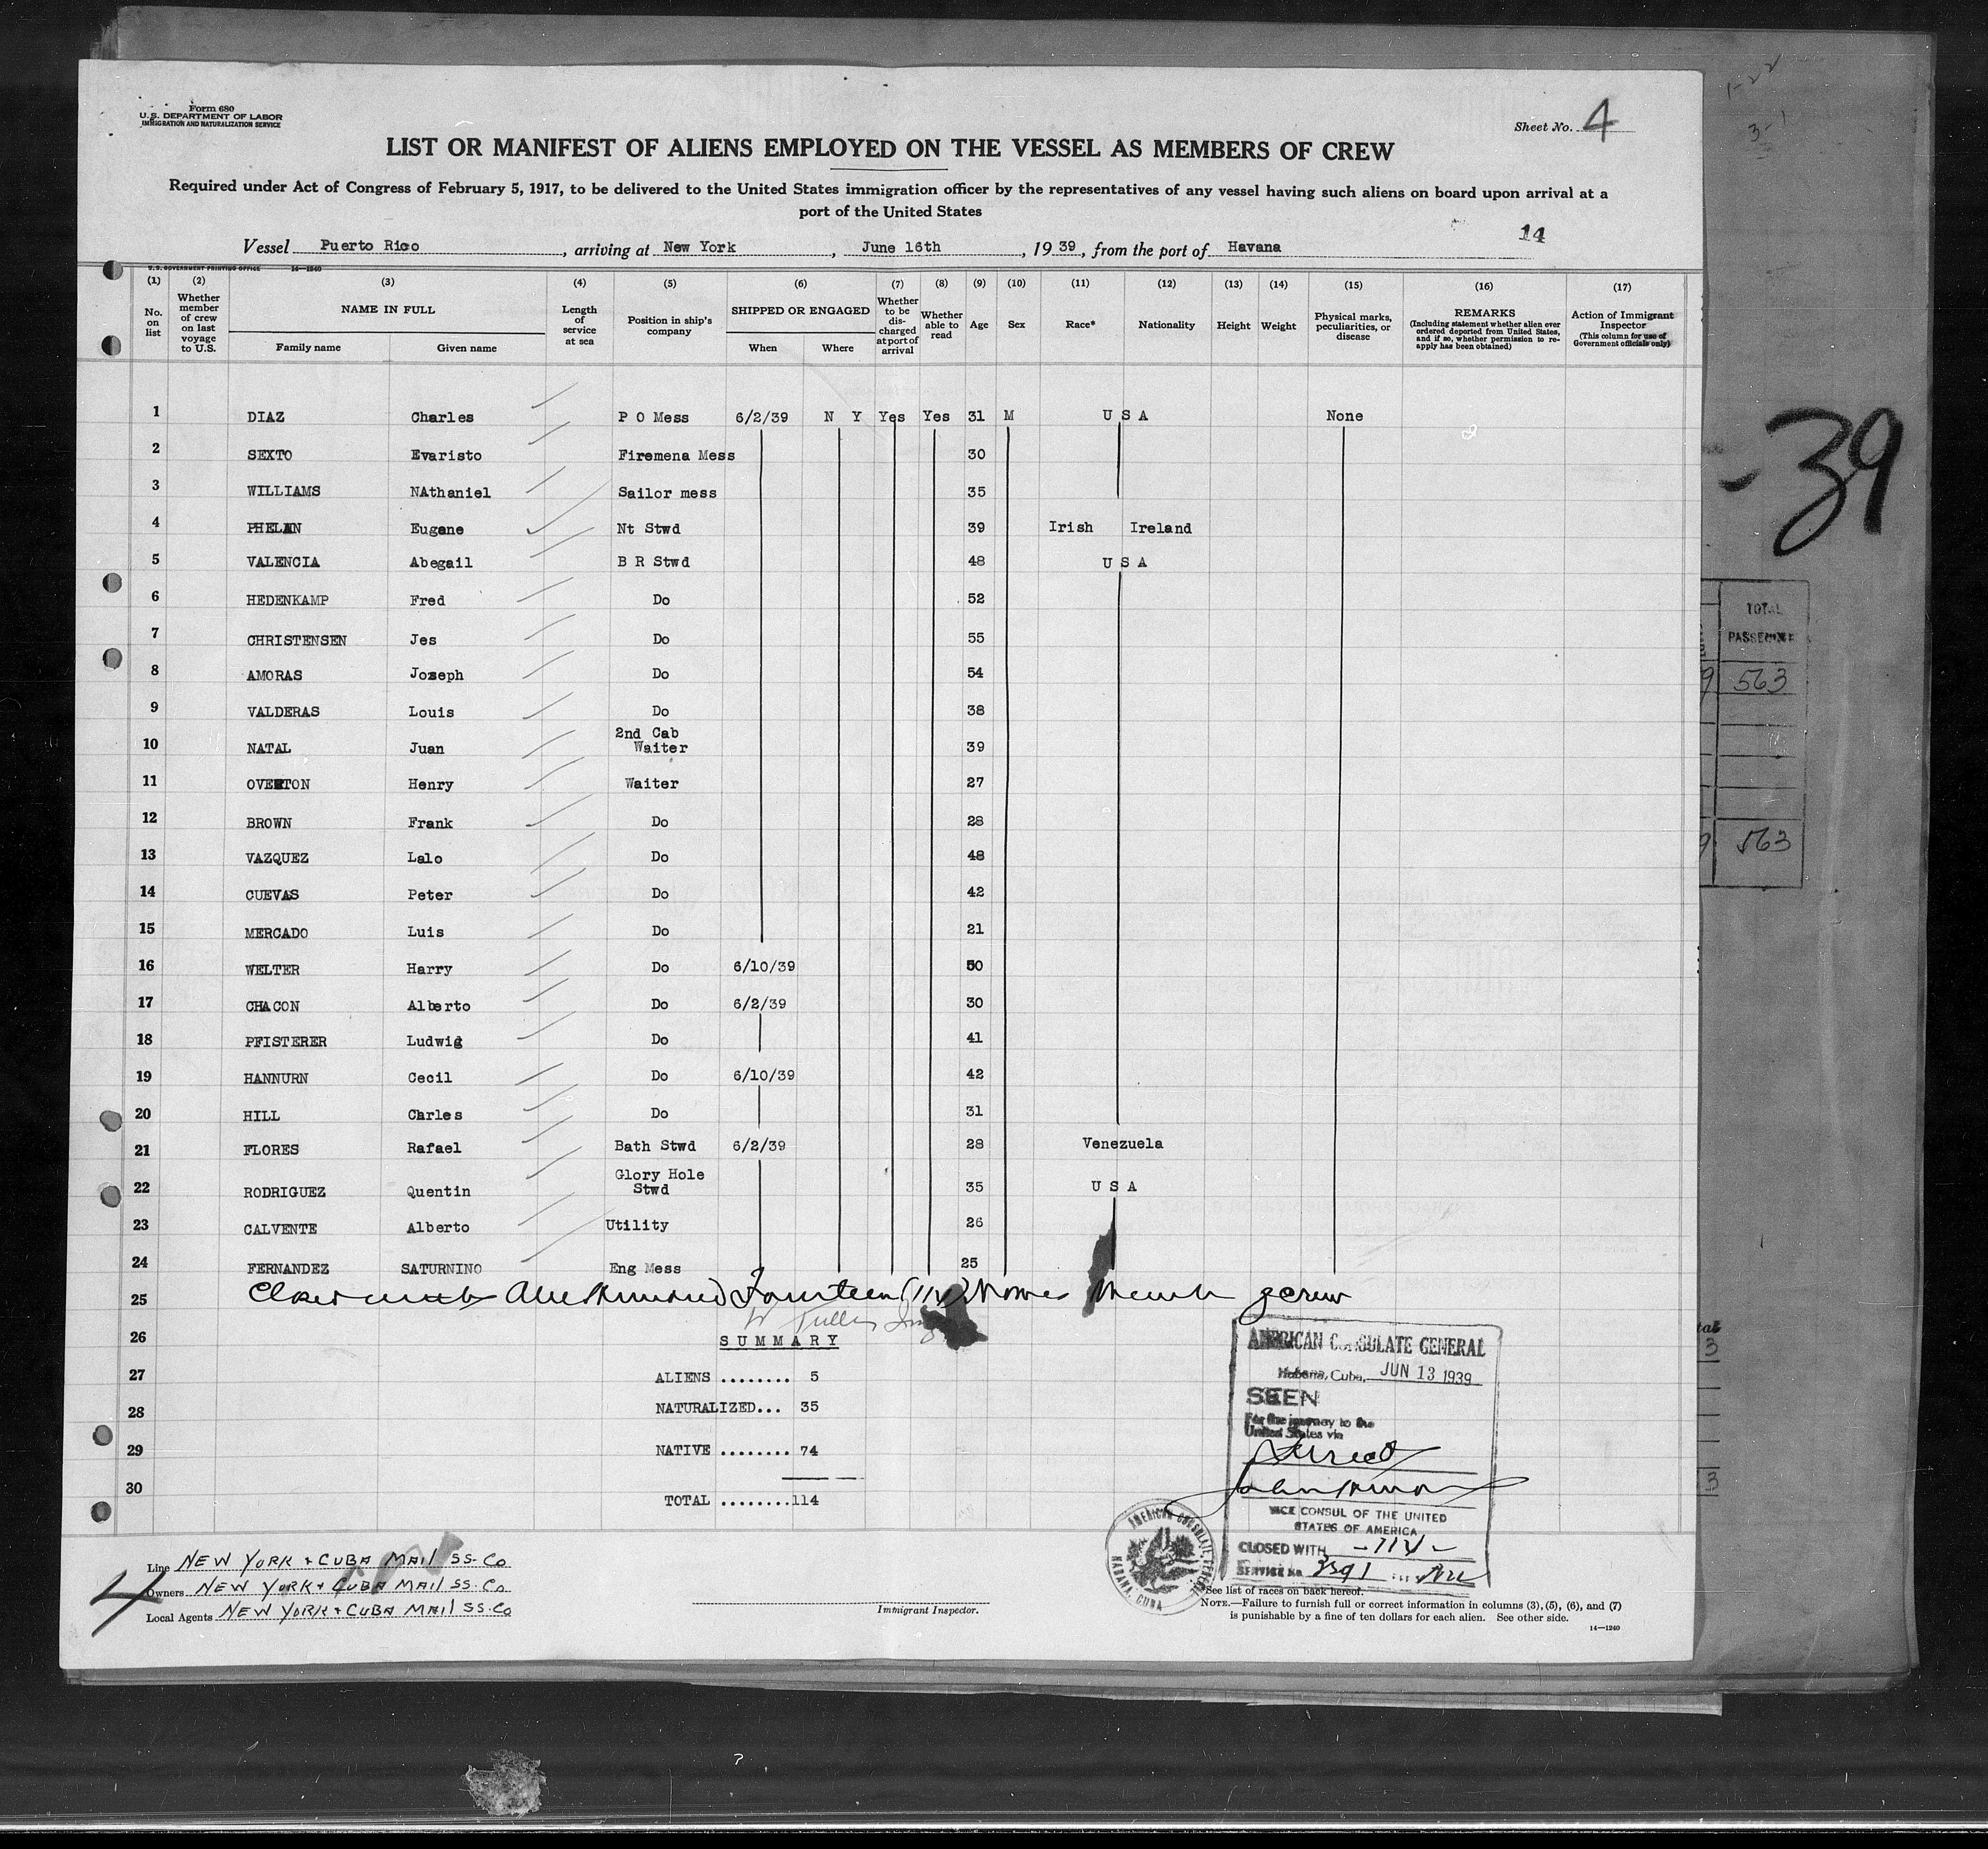 Form 680
U.S. DEPARTMENT OF LABOR
IMMIGRATION AND NATURALIZATION SERVICE
Sheet No. 4
LIST OR MANIFEST OF ALIENS EMPLOYED ON THE VESSEL AS MEMBERS OF CREW
Required under Act of Congress of February 5, 1917, to be delivered to the United States immigration officer by the representatives of any vessel having such aliens on board upon arrival at a
port of the United States
14
Vessel Puerto Rico, arriving at New York, June 16th, 1939, from the port of Havana
U.S. GOVERNMENT PRINTING OFFICE 14—1240
(1) No. on list
(2) Whether member of crew on last voyage to U.S.
(3) NAME IN FULL Family name Given name
(4) Length of service at sea
(5) Position in ship's company
(6) SHIPPED OR ENGAGED When Where
(7) Whether to be discharged at port of arrival
(8) Whether able to read
(9) Age
(10) Sex
(11) Race*
(12) Nationality
(13) Height
(14) Weight
(15) Physical marks, peculiarities, or disease
(16) REMARKS (Including statement whether alien ever ordered deported from United States, and if so, whether permission to reapply has been obtained)
(17) Action of Immigrant Inspector (This column for use of Government officials only)
1 DIAZ Charles P O Mess 6/2/39 N Y Yes Yes 31 M U S A None
2 SEXTO Evaristo Firemena Mess 30
3 WILLIAMS NAthaniel Sailor mess 35
4 PHELAN Eugene Nt Stwd 39 Irish Ireland
5 VALENCIA Abegail B R Stwd 48 U S A
6 HEDENKAMP Fred Do 52
7 CHRISTENSEN Jes Do 55
8 AMORAS Joseph Do 54
9 VALDERAS Louis Do 38
10 NATAL Juan 2nd Cab Waiter 39
11 OVERTON Henry Waiter 27
12 BROWN Frank Do 28
13 VAZQUEZ Lalo Do 48
14 CUEVAS Peter Do 42
15 MERCADO Luis Do 21
16 WELTER Harry Do 6/10/39 50
17 CHACON Alberto Do 6/2/39 30
18 PFISTERER Ludwig Do 41
19 HANNURN Cecil Do 6/10/39 42
20 HILL Chrles Do 31
21 FLORES Rafael Bath Stwd 6/2/39 28 Venezuela
22 RODRIGUEZ Quentin Glory Hole Stwd 35 U S A
23 CALVENTE Alberto Utility 26
24 FERNANDEZ SATURNINO Eng Mess 25
25 Closed with One Hundred Fourteen (114) crew
26 SUMMARY
27 ALIENS ........ 5
28 NATURALIZED... 35
29 NATIVE ........ 74
30 TOTAL ........114
AMERICAN CONSULATE GENERAL
Habana, Cuba, JUN 13 1939
SEEN
For the journey to the
United States via
Direct
VICE CONSUL OF THE UNITED
STATES OF AMERICA
CLOSED WITH -114-
SERVICE No. 3391
AMERICAN CONSULATE GENERAL HABANA, CUBA
Line NEW YORK + CUBA MAIL SS. Co
Owners NEW YORK + CUBA MAIL SS. Co
Local Agents NEW YORK + CUBA MAIL SS. Co
4
Immigrant Inspector.
*See list of races on back hereof.
NOTE.—Failure to furnish full or correct information in columns (3), (5), (6), and (7)
is punishable by a fine of ten dollars for each alien. See other side.
14—1240
3-1
-39
TOTAL
PASSENGER
563
563
3
3